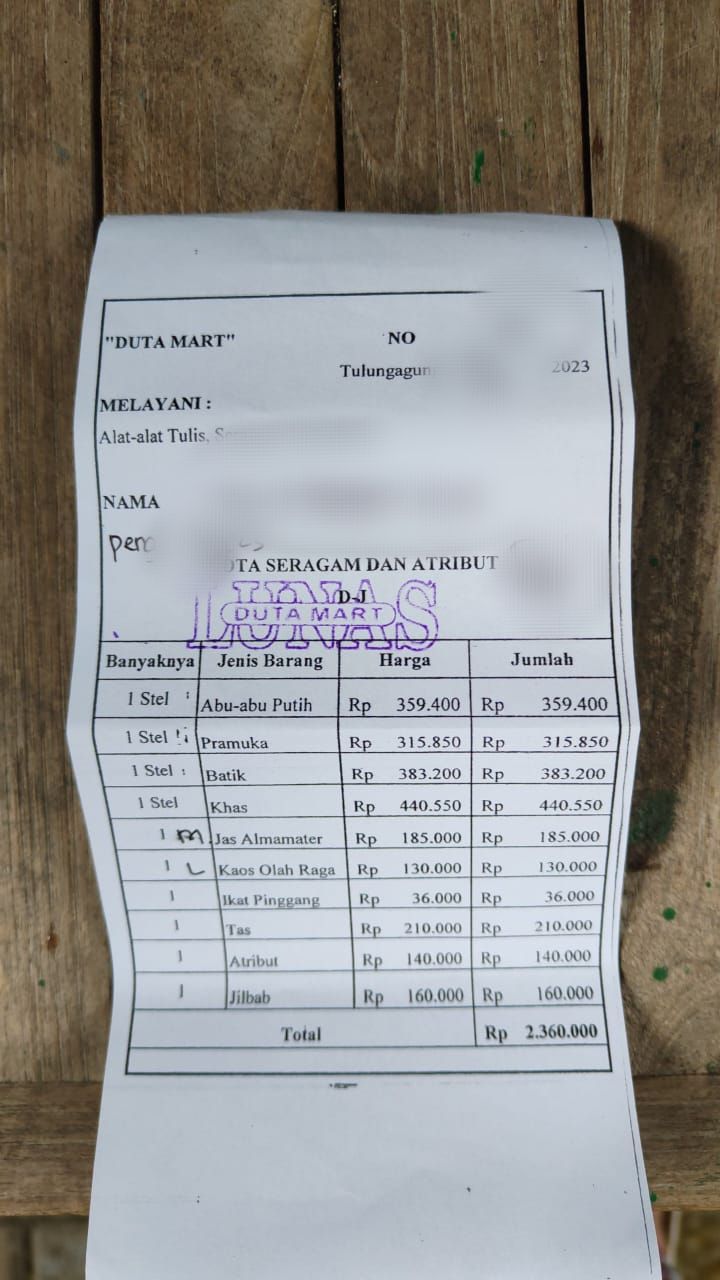 "DUTA MART" NO
Tulungagun 2023
MELAYANI :
Alat-alat Tulis,
NAMA
OTA SERAGAM DAN ATRIBUT
D-J
LUNAS
DUTA MART
Banyaknya Jenis Barang Harga Jumlah
1 Stel Abu-abu Putih Rp 359.400 Rp 359.400
1 Stel Pramuka Rp 315.850 Rp 315.850
1 Stel Batik Rp 383.200 Rp 383.200
1 Stel Khas Rp 440.550 Rp 440.550
1 M Jas Almamater Rp 185.000 Rp 185.000
1 L Kaos Olah Raga Rp 130.000 Rp 130.000
1 Ikat Pinggang Rp 36.000 Rp 36.000
1 Tas Rp 210.000 Rp 210.000
1 Atribut Rp 140.000 Rp 140.000
1 Jilbab Rp 160.000 Rp 160.000
Total Rp 2.360.000